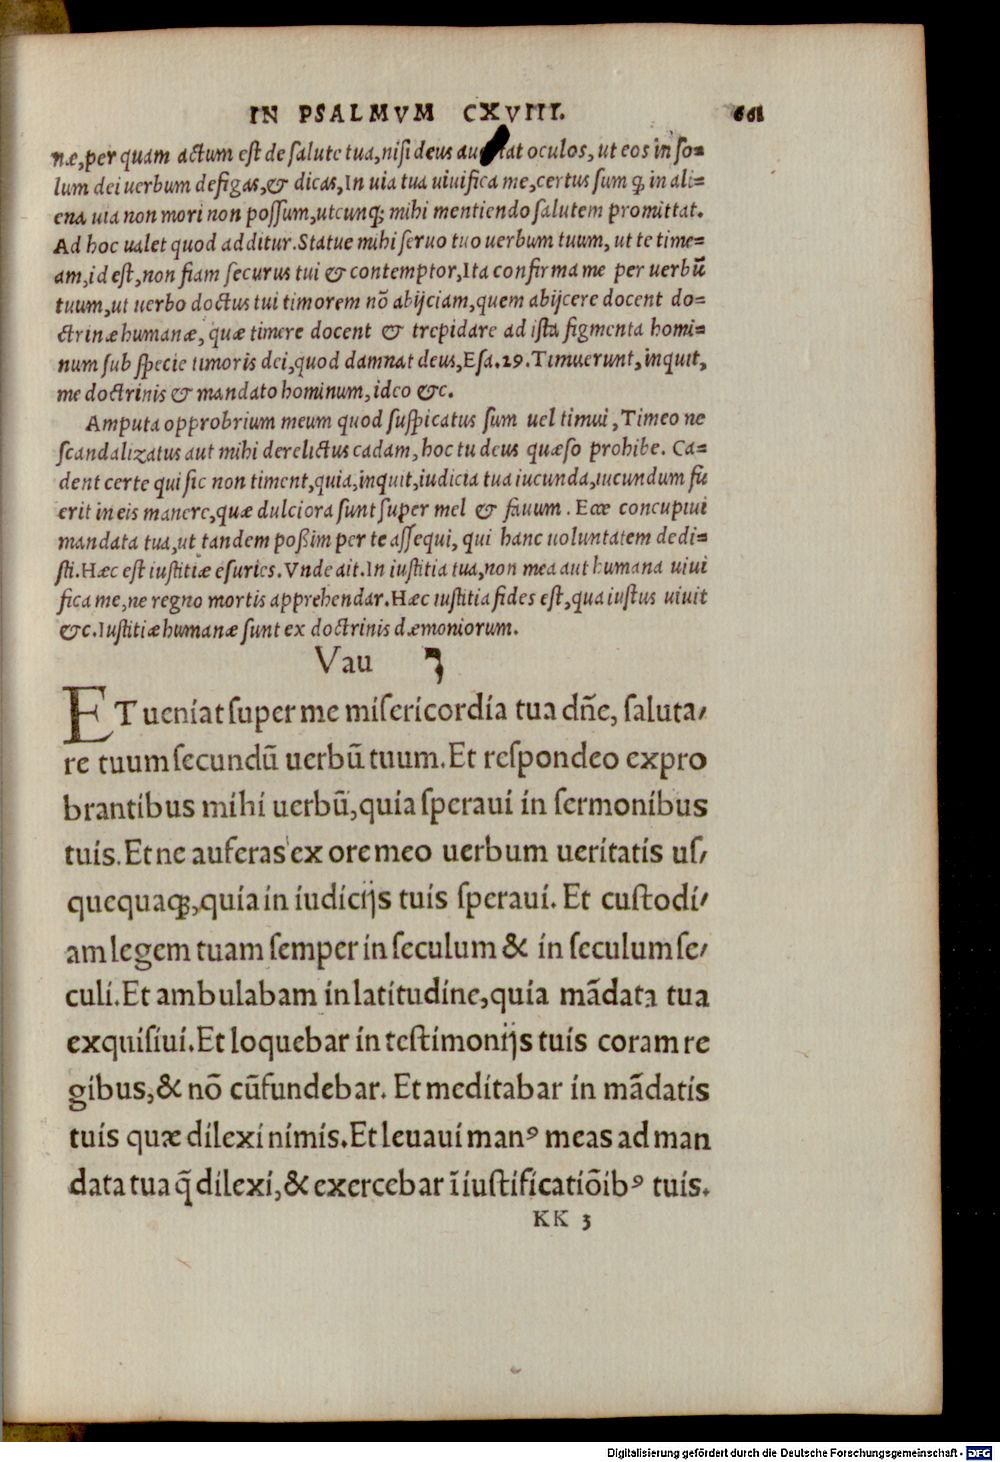 IN PSALMVM CXVIII. 661
næ, per quam actum est de salute tua, nisi deus oculos, ut eos in so=
lum dei uerbum defigas, & dicas, In uia tua uiuifica me, certus sum ꝙ in ali=
ena uia non mori non possum, utcunqꝫ mihi mentiendo salutem promittat.
Ad hoc ualet quod additur. Statue mihi seruo tuo uerbum tuum, ut te time=
am, id est, non fiam securus tui & contemptor, Ita confirma me per uerbū
tuum, ut uerbo doctus tui timorem nō abijciam, quem abijcere docent do=
ctrinæ humanæ, quæ timere docent & trepidare ad ista figmenta homi=
num sub specie timoris dei, quod damnat deus, Esa. 29. Timuerunt, inquit,
me doctrinis & mandato hominum, ideo &c.
Amputa opprobrium meum quod suspicatus sum uel timui, Timeo ne
scandalizatus aut mihi derelictus cadam, hoc tu deus quæso prohibe. Ca=
dent certe qui sic non timent, quia, inquit, iudicia tua iucunda, iucundum fu
erit in eis manere, quæ dulciora sunt super mel & fauum. Ecce concupiui
mandata tua, ut tandem poßim per te assequi, qui hanc uoluntatem dedi=
sti. Hæc est iustitiæ esuries. Vnde ait. In iustitia tua, non mea aut humana uiui
fica me, ne regno mortis apprehendar. Hæc iustitia fides est, qua iustus uiuit
&c. Iustitiæ humanæ sunt ex doctrinis dæmoniorum.
Vau ו
ET ueniat super me misericordia tua dñe, saluta/
re tuum secundū uerbū tuum. Et respondeo expro
brantibus mihi uerbū, quia speraui in sermonibus
tuis. Et ne auferas ex ore meo uerbum ueritatis us/
quequaqꝫ, quia in iudicijs tuis speraui. Et custodi/
am legem tuam semper in seculum & in seculum se/
culi. Et ambulabam in latitudine, quia mādata tua
exquisiui. Et loquebar in testimonijs tuis coram re
gibus, & nō cūfundebar. Et meditabar in mādatis
tuis quæ dilexi nimis. Et leuaui manꝰ meas ad man
data tua q̄ dilexi, & exercebar ī iustificatiōibꝰ tuis.
KK 3
Digitalisierung gefördert durch die Deutsche Forschungsgemeinschaft - DFG